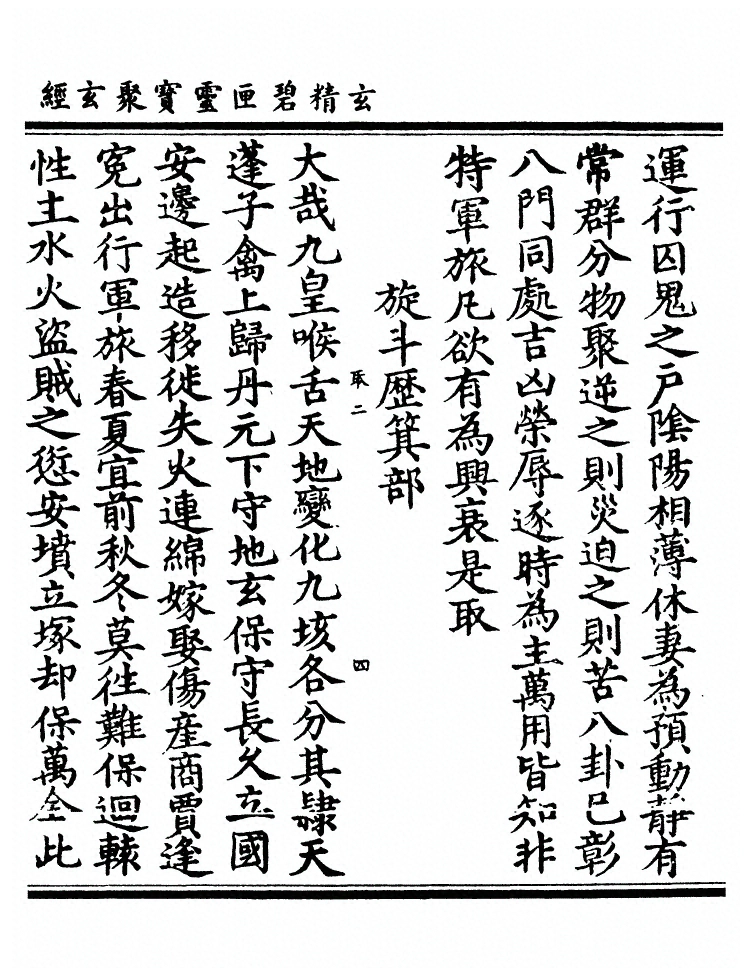 玄精碧匣靈寶聚玄經
運行囚鬼之戶陰陽相薄休妻為預動靜有
常群分物聚逆之則災迫之則苦八卦已彰
八門同處吉凶榮辱逐時為主萬用皆知非
特軍旅凡欲有為興衰是取
旋斗歷箕部
取二
四
大哉九皇喉舌天地變化九垓各分其隸天
蓬子禽上歸丹元下守地玄保守長久立國
安邊起造移徙失火連綿嫁娶傷產商賈逢
冤出行軍旅春夏宜前秋冬莫往難保迴轅
性土水火盜賊之愆安墳立塚却保萬全此